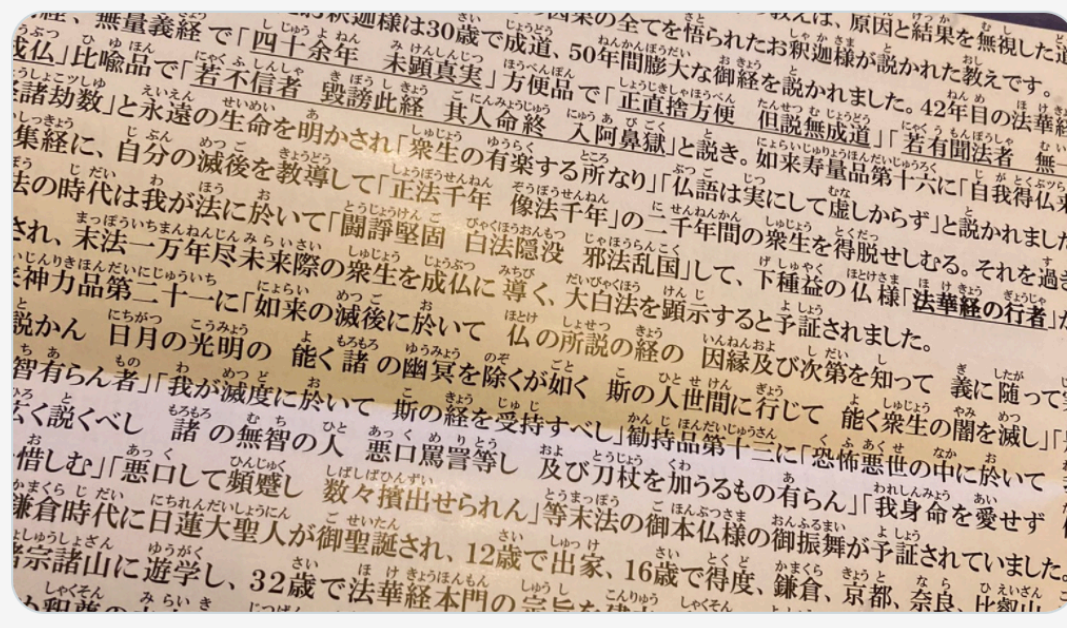 教えは、原因と結果を無視した道
因果の全てを悟られたお釈迦様が説かれた教えです。
お釈迦様は30歳で成道、50年間膨大な御経を説かれました。42年目の法華経
経、無量義経で「四十余年　未顕真実」方便品で「正直捨方便　但説無成道」「若有聞法者　無一
成仏」比喩品で「若不信者　毀謗此経　其人命終　入阿鼻獄」と説き。如来寿量品第十六に「自我得仏来
諸劫数」と永遠の生命を明かされ「衆生の有楽する所なり」「仏語は実にして虚しからず」と説かれました
集経に、自分の滅後を教導して「正法千年　像法千年」の二千年間の衆生を得脱せしむる。それを過ぎ
法の時代は我が法に於いて「闘諍堅固　白法隠没　邪法乱国」して、下種益の仏様「法華経の行者」が
され、末法一万年尽未来際の衆生を成仏に導く、大白法を顕示すると予証されました。
来神力品第二十一に「如来の滅後に於いて　仏の所説の経の　因縁及び次第を知って　義に随って
説かん　日月の光明の　能く諸の幽冥を除くが如く　斯の人世間に行じて　能く衆生の闇を滅し」「
智有らん者」「我が滅度に於いて　斯の経を受持すべし」勧持品第十三に「恐怖悪世の中に於いて
広く説くべし　諸の無智の人　悪口罵詈等し　及び刀杖を加うるもの有らん」「我身命を愛せず
惜しむ」「悪口して頻蹙し　数々擯出せられん」等末法の御本仏様の御振舞が予証されていました。
鎌倉時代に日蓮大聖人が御聖誕され、12歳で出家、16歳で得度、鎌倉、京都、奈良、比叡山
宗諸山に遊学し、32歳で法華経本門の宗旨を建